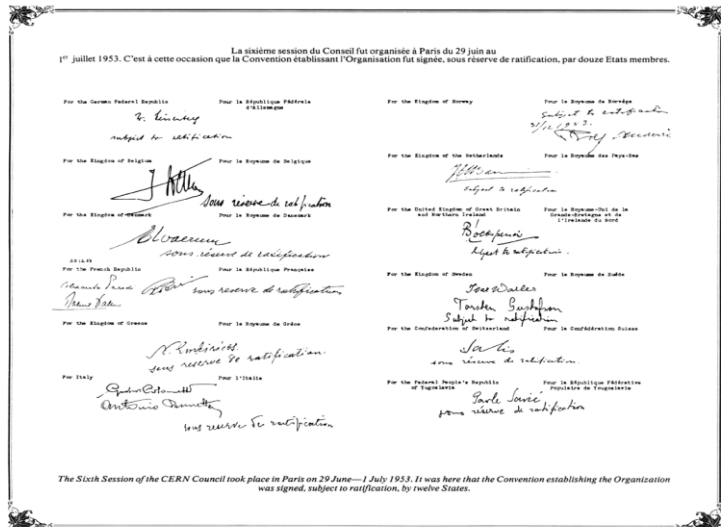 La sixième session du Conseil fut organisée à Paris du 29 juin au
1er juillet 1953. C'est à cette occasion que la Convention établissant l'Organisation fut signée, sous réserve de ratification, par douze Etats membres.
For the German Federal Republic
Pour la République Fédérale
d'Allemagne
subject to ratification
For the Kingdom of Belgium
Pour le Royaume de Belgique
sous réserve de ratification
For the Kingdom of Denmark
Pour le Royaume de Danemark
sous réserve de ratification
For the French Republic
Pour la République Française
sous reserve de ratification
For the Kingdom of Greece
Pour le Royaume de Grèce
sous reserve de ratification.
For Italy
Pour l'Italie
Antonio
sous reserve de ratification
For the Kingdom of Norway
Pour le Royaume de Norvège
Subject to ratification
31/12 1953.
For the Kingdom of the Netherlands
Pour le Royaume des Pays-Bas
Subject to ratification
For the United Kingdom of Great Britain
and Northern Ireland
Pour le Royaume-Uni de la
Grande-Bretagne et de
l'Irelande du Nord
Subject to ratification.
For the Kingdom of Sweden
Pour le Royaume de Suède
Torsten Gustafson
Subject to ratification
For the Confederation of Switzerland
Pour la Confédération Suisse
sous réserve de ratification.
For the Federal People's Republic
of Yugoslavia
Pour la République Fédérative
Populaire de Yougoslavie
Pavle Savić
sous réserve de ratification
The Sixth Session of the CERN Council took place in Paris on 29 June—1 July 1953. It was here that the Convention establishing the Organization
was signed, subject to ratification, by twelve States.